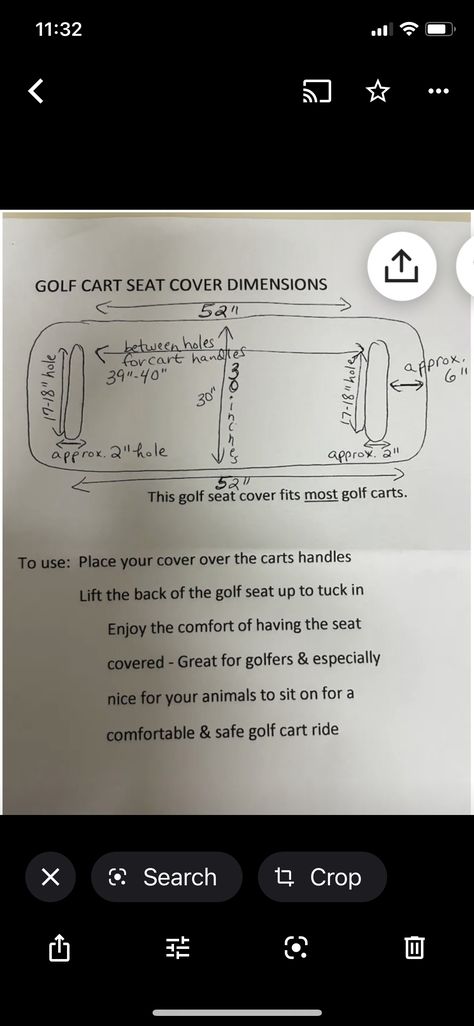 11:32
GOLF CART SEAT COVER DIMENSIONS
52"
between holes
for cart handles
39"-40"
17-18" hole
30"
30 inches
17-18" hole
approx.
6"
approx. 2" hole
approx. 2"
52"
This golf seat cover fits most golf carts.
To use: Place your cover over the carts handles
Lift the back of the golf seat up to tuck in
Enjoy the comfort of having the seat
covered - Great for golfers & especially
nice for your animals to sit on for a
comfortable & safe golf cart ride
Search
Crop